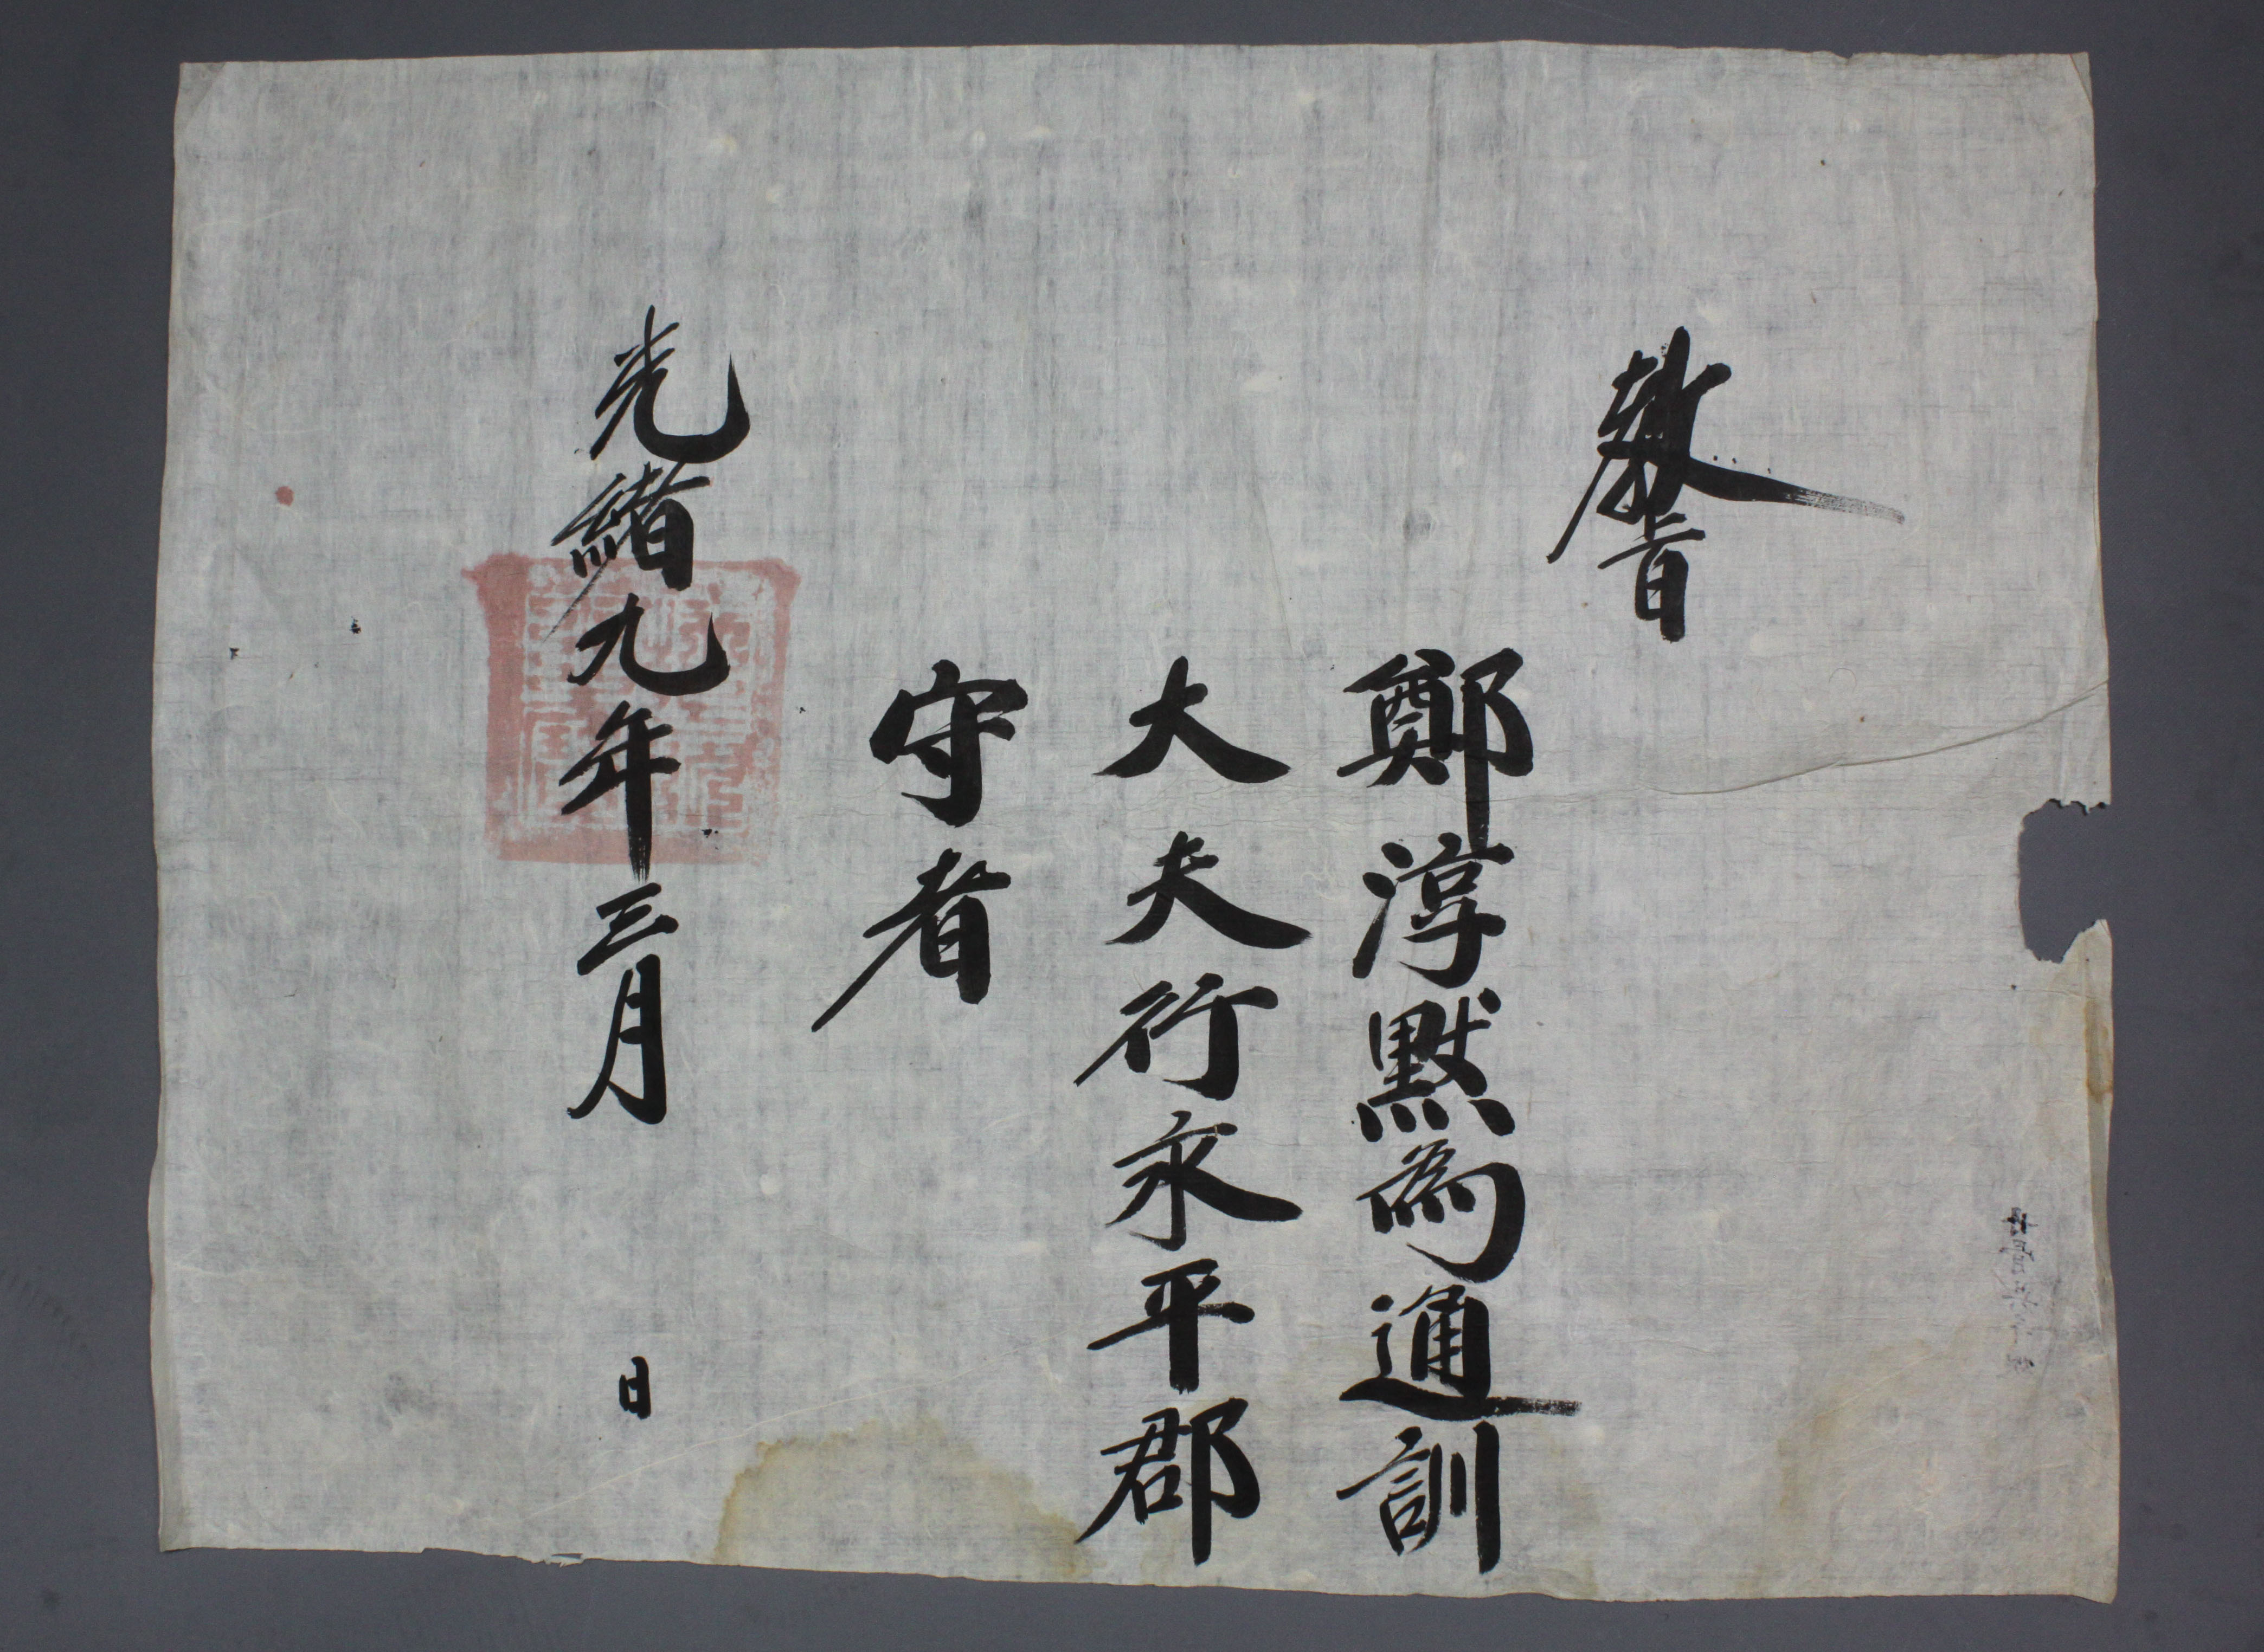 敎旨
鄭淳默爲通訓
大夫行永平郡
守者
光緖九年三月　日